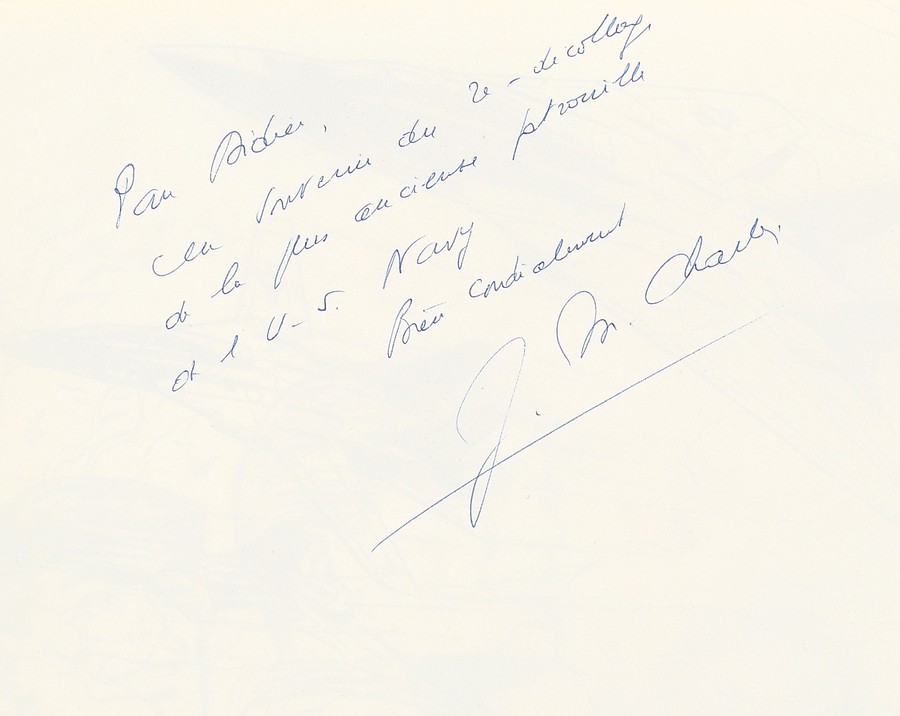 Pour Didier,
en souvenir du re-décollage
de la plus ancienne patrouille
de l'U-S. Navy
Bien cordialement
J. M. Charles